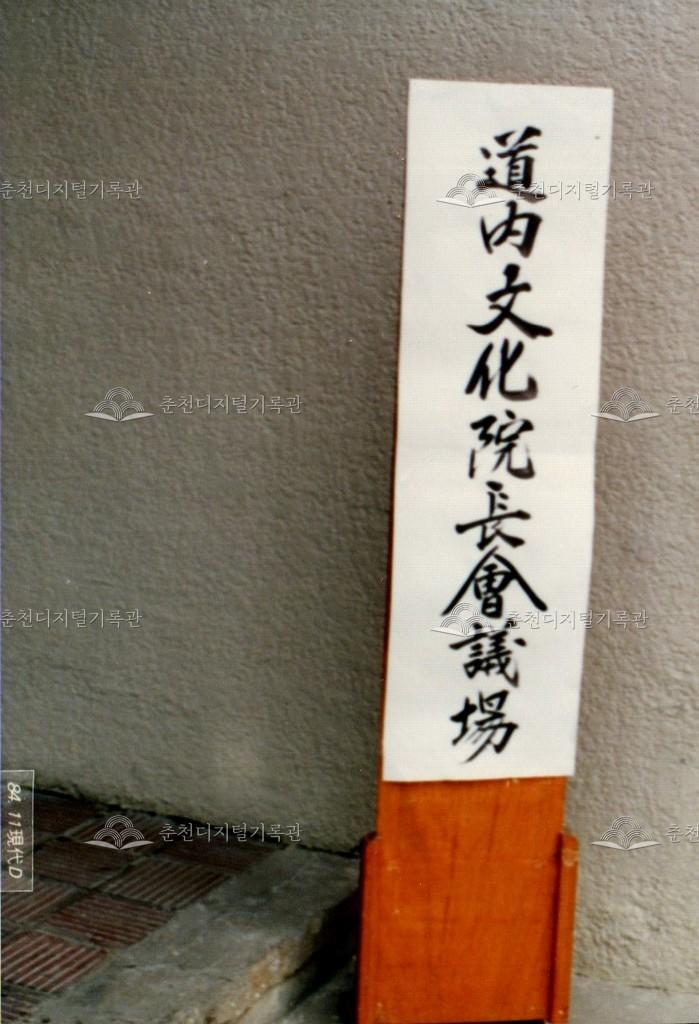 道内文化院長會議場
춘천디지털기록관
춘천디지털기록관
춘천디지털기록관
춘천
춘천디지털기록관
춘천디지털기록관
춘천디지털기록관
춘천
84.11現代D